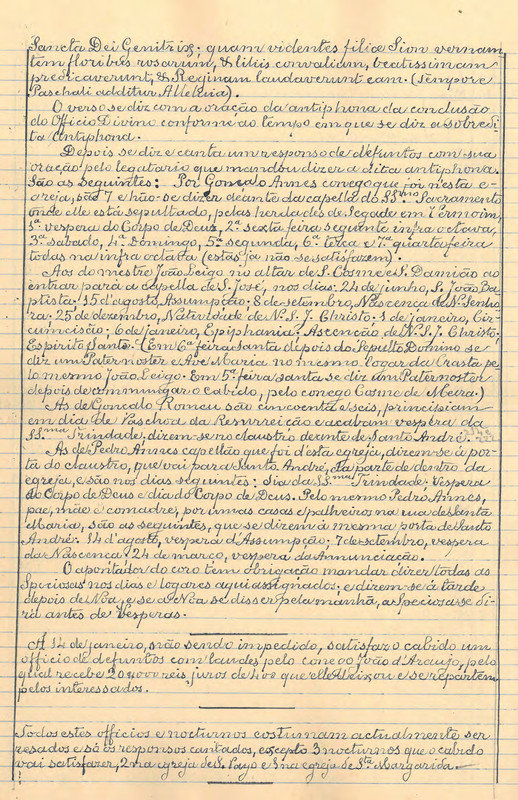 Sancta Dei Genitrix; quam videntes filiæ Sion vernan
tem floribus rosarum, & liliis convalium, beatissimam
predicaverunt, & Reginam laudaverunt eam. (Tempore
Paschali additur Alleluia).
O verso se diz com a oração da antiphona da conclusão
do Officio Divino conforme ao tempo em que se diz a sobredi
ta Antiphona.
Depois se diz e canta um responso de defuntos com sua
oração pelo legatario que mandou dizer a dita antiphona.
São as seguintes: Por Gonçalo Annes conego que foi n'esta e-
greja, são 7 e hão-se dizer deante da capella do SS.mo Sacramento
onde elle está sepultado, pelas herdades de Segade em Vermoim,
1ª vespera do Corpo de Deus, 2ª sexta feira seguinte infra octava,
3ª sabado, 4ª Domingo, 5ª segunda, 6ª terça e 7ª quarta feira
todas na infra octava (estas já não se satisfazem).
Aos do mestre João Leigo no altar de S. Cosme e S. Damião ao
entrar para a capella de S. José, nos dias: 24 de junho, S. João Ba
ptista: 15 d'agosto, Assumpção: 8 de setembro, Nascença de N.ª Senho
ra: 25 de dezembro, Natividade de N. S. J. Christo: 1 de janeiro, Cir
cumcisão; 6 de janeiro, Epiphania: Ascenção de N. S. J. Christo;
Espirito Santo. (Em 6ª feira santa depois do Sepulto Domino se
diz um Paternoster e Ave Maria no mesmo logar da Crasta pe
lo mesmo João Leigo. Em 5ª feira santa se diz um Paternoster
depois de commungar o cabido, pelo conego Cosme de Meira.)
As de Gonçalo Romeu são cincoenta e seis, principiam
em dia de Paschoa da Resurreição e acabam vespera da
SS.ma Trindade; dizem-se no claustro deante de Santo André.
As de Pedro Annes capellão que foi d'esta egreja, dizem-se á por-
ta do claustro, que vai para Santo André, da parte de dentro da
egreja, e são nos dias seguintes: dia da SS.ma Trindade; Vespera
do Corpo de Deus e dia do Corpo de Deus. Pelo mesmo Pedro Annes,
pae, mãe e comadre, por umas casas e palheiros na rua de Santa
Maria, são as seguintes, que se dizem á mesma porta de Santo
André: 14 d'agosto, vespera d'Assumpção; 7 de setembro, vespera
da Nascença; 24 de março, vespera da Annunciação.
O apontador do coro tem obrigação mandar dizer todas as
Speciosas nos dias e logares aqui assignados; e dizem-se á tarde
depois de Nôa, e se a Nôa se disser pela manhã, a Speciosa se di-
rá antes de Vesperas.
A 14 de janeiro, não sendo impedido, satisfaz o cabido um
officio de defuntos com laudes pelo conego João d'Araujo, pelo
qual recebe 20$000 reis, juros de 400$ que elle deixou e se repartem
pelos interessados.
Todos estes officios e nocturnos costumam actualmente ser
resados e só os responsos cantados, excepto 3 nocturnos que o cabido
vai satisfazer, 2 na egreja de S. Payo e 1 na egreja de S.ta Margarida.